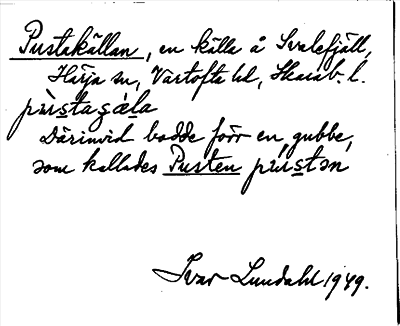 Pustakällan, en källa å Svalefjäll,
Härja sn, Vartofta hd, Skarab. l.
pùsta ɕæ̀la
Därinvid bodde förr en gubbe,
som kallades Pusten pústən
Ivar Lundahl 1949.